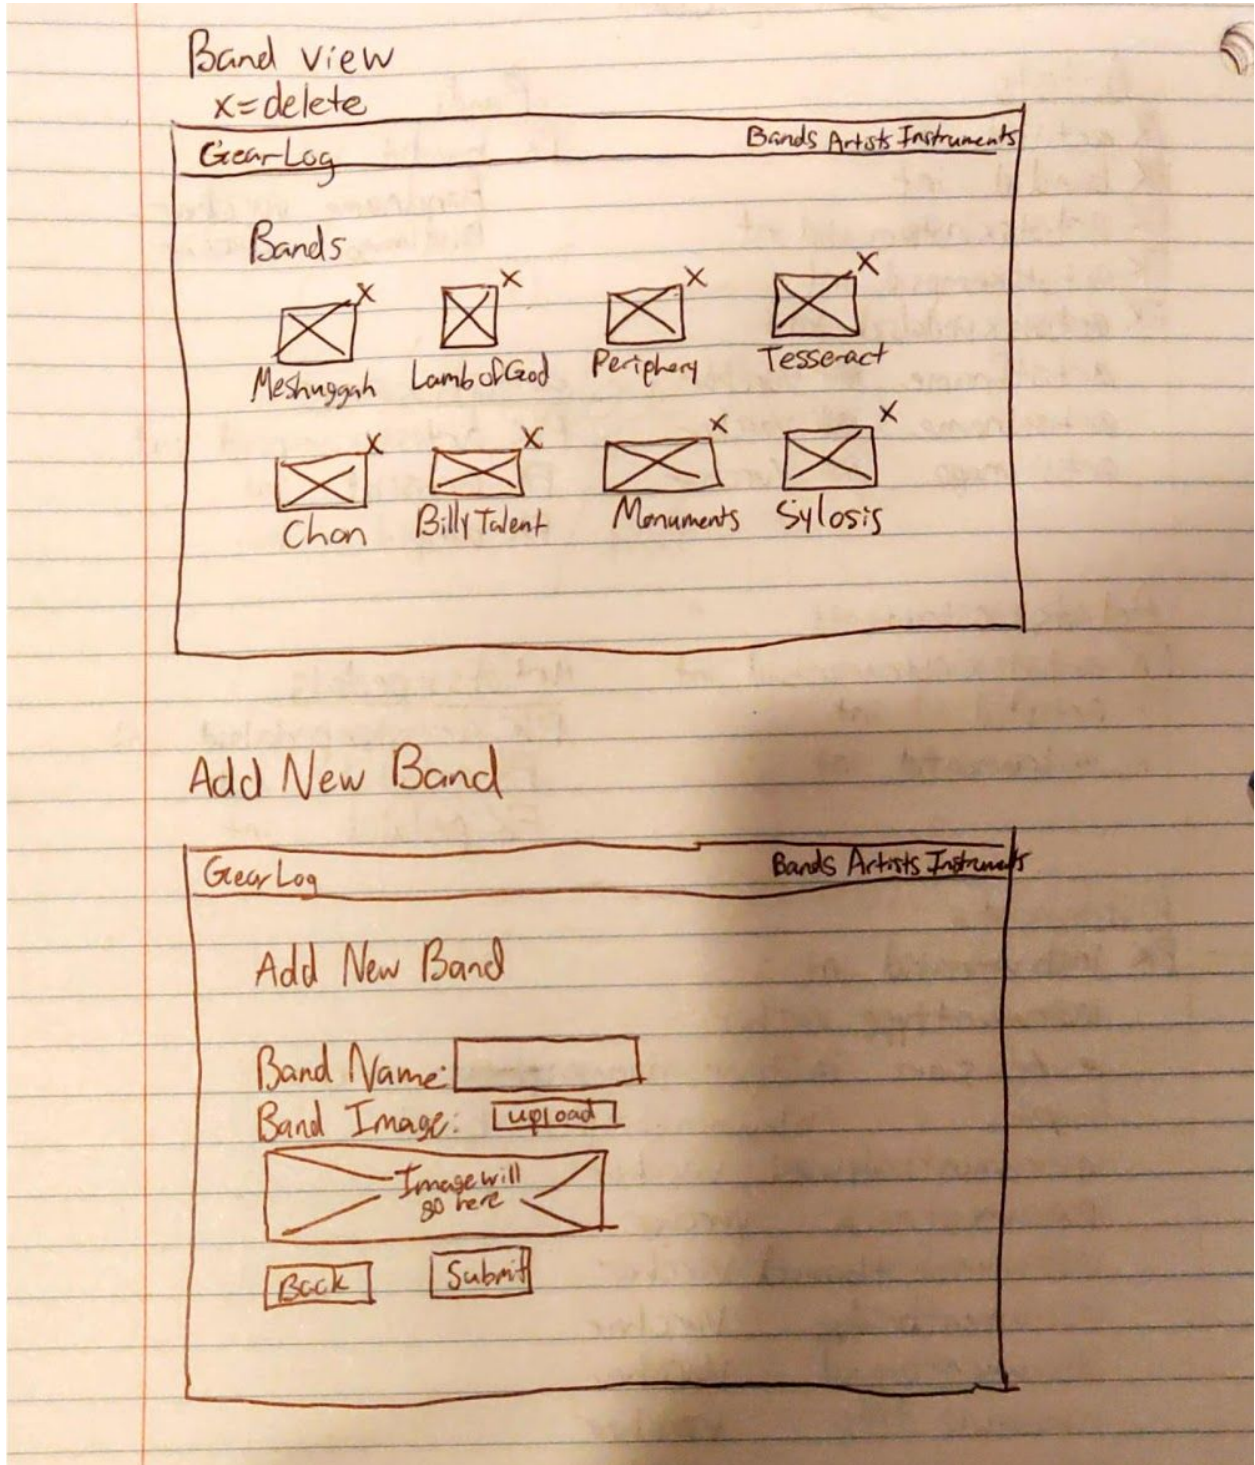 Band view
x=delete
GearLog
Bands Artists Instruments
Bands
x x x x
Meshuggah Lamb of God Periphery Tesseract
x x x x
Chon Billy Talent Monuments Sylosis
Add New Band
GearLog
Bands Artists Instruments
Add New Band
Band Name:
Band Image: upload
Image will
go here
Back Submit